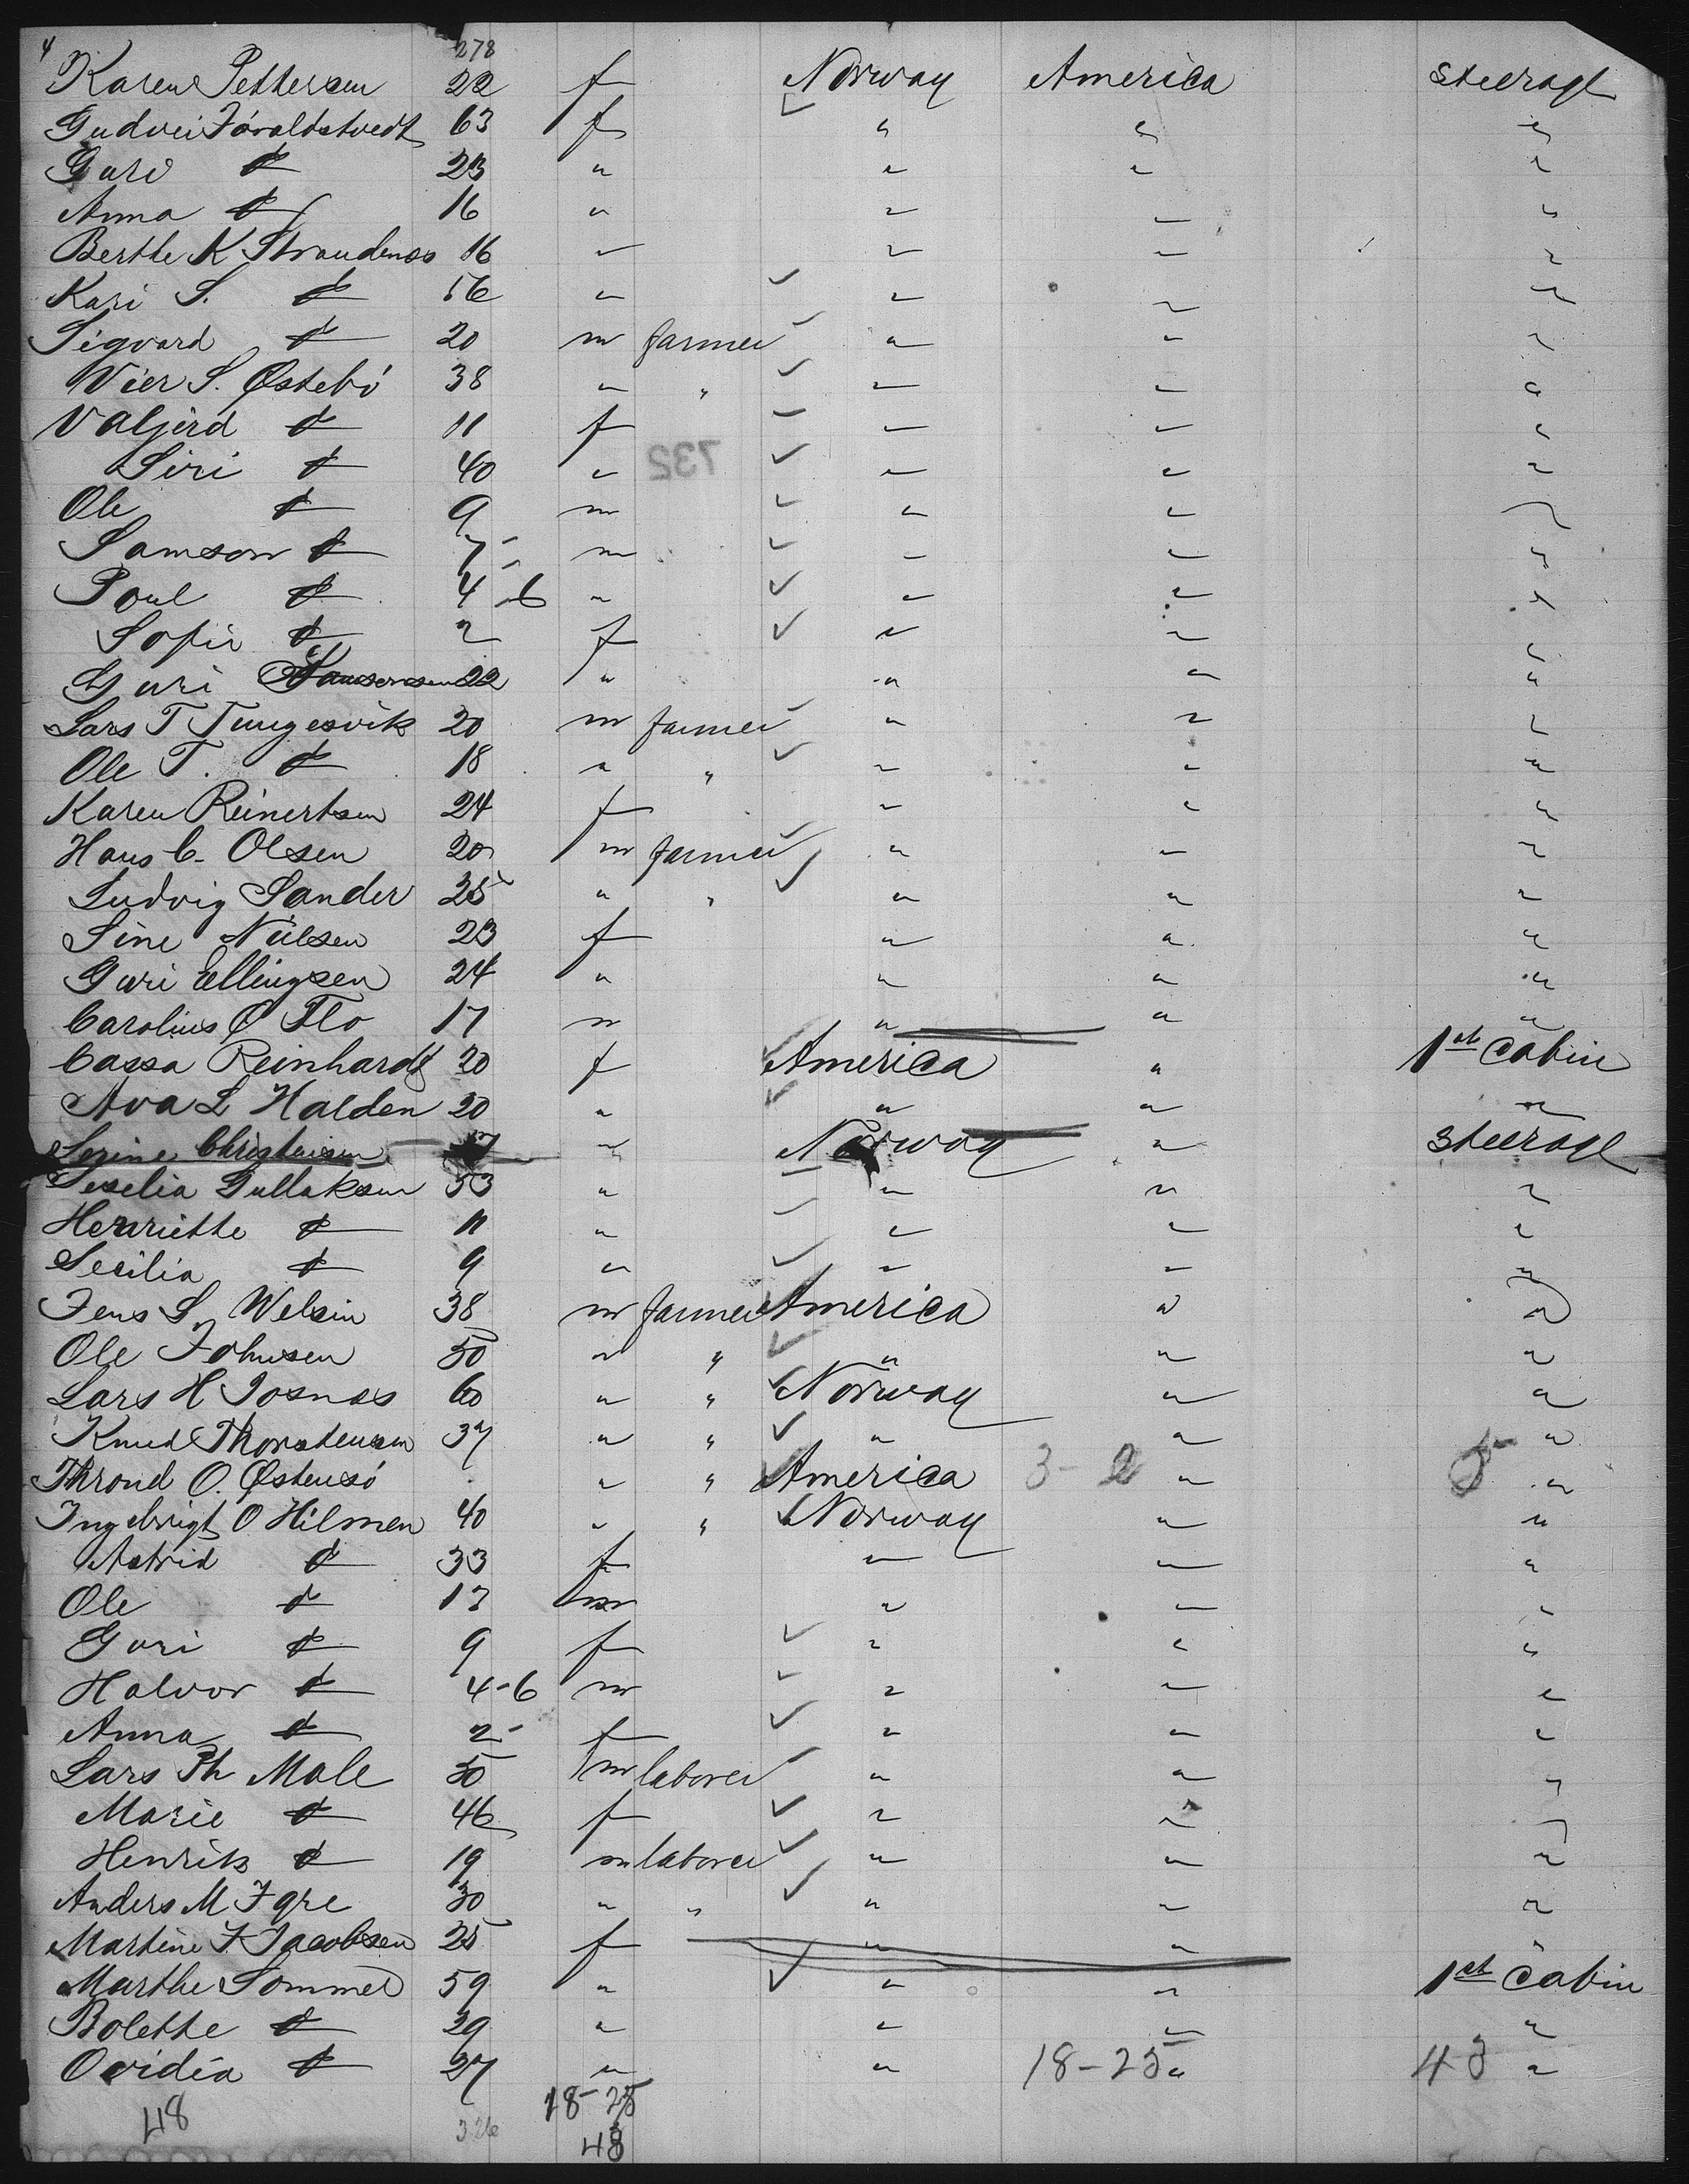 4 278
Karen Pettersen 22 f Norway America Steerage
Gudvei 63 f " " "
Guri d 23 " " " "
Anna d 16 " " " "
Berthe K Strandenos 16 " " " "
Kari S. d 56 " " " "
Sigvard d 20 m farmer " " "
Vier S. Østebö 38 " " " " "
Valjerd d 11 f " " "
Siri d 40 " " " "
Ole d 9 m " " "
Samson d 7 m " " "
Poul d 4-6 " " " "
Sofie d 2 f " " "
Guri 22 " " " "
Lars T Tungesvik 20 m farmer " " "
Ole T. d 18 " " " " "
Karen Reinertsen 24 f " " "
Hans C. Olsen 20 m farmer " " "
Ludvig Sander 25 " " " " "
Sine Nilsen 23 f " " "
Guri Ellingsen 24 " " " "
Carolius O Flo 17 m " " "
Cassa Reinhardt 20 f America " 1st Cabin
Ava L Halden 20 " " " "
Serine Christensen " Norway " Steerage
Seselia Gullaksen 53 " " " "
Henriette d 11 " " " "
Secilia d 9 " " " "
Jens S. Welsin 38 m farmer America " "
Ole Johnsen 50 " " " " "
Lars H Josnas 60 " " Norway " "
Knud Thorstensen 37 " " " " "
Thrond O. Østensö " " America 3-2 " "
Ingebrigt O Hilmen 40 " " Norway " "
Astrid d 33 f " " "
Ole d 13 m " " "
Guri d 9 f " " "
Halvor d 4-6 m " " "
Anna d 2 f " " "
Lars Th Male 50 m laborer " " "
Marie d 46 f " " "
Henrik d 19 m laborer " " "
Anders M Igre 30 " " " " "
Martine J Jacobsen 25 f " " "
Marthe Sommer 59 " " " 1st Cabin
Bolette d 29 " " " "
Ovidia d 27 " " 18-25 " 43 "
48 326 18-25
48
732